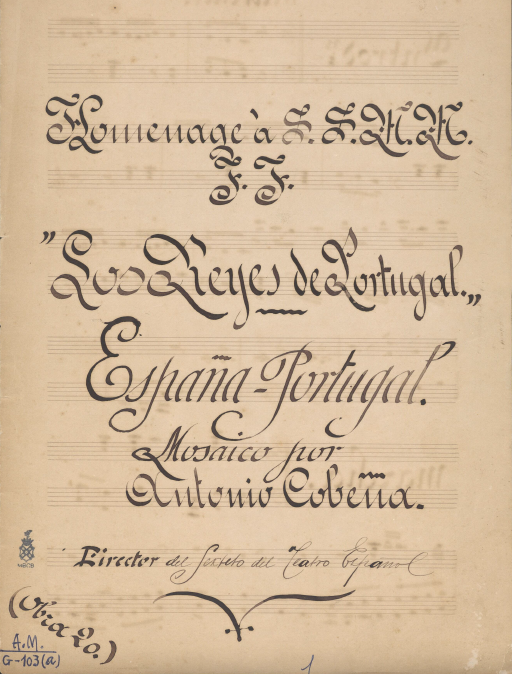 Homenage à S. S. M. M.
F. F.
"Los Reyes de Portugal."
España-Portugal.
Mosaico por
Antonio Cobeña.
Director del Sexteto del Teatro Español
(Obra 20.)
A.M.
G-103(a)
1